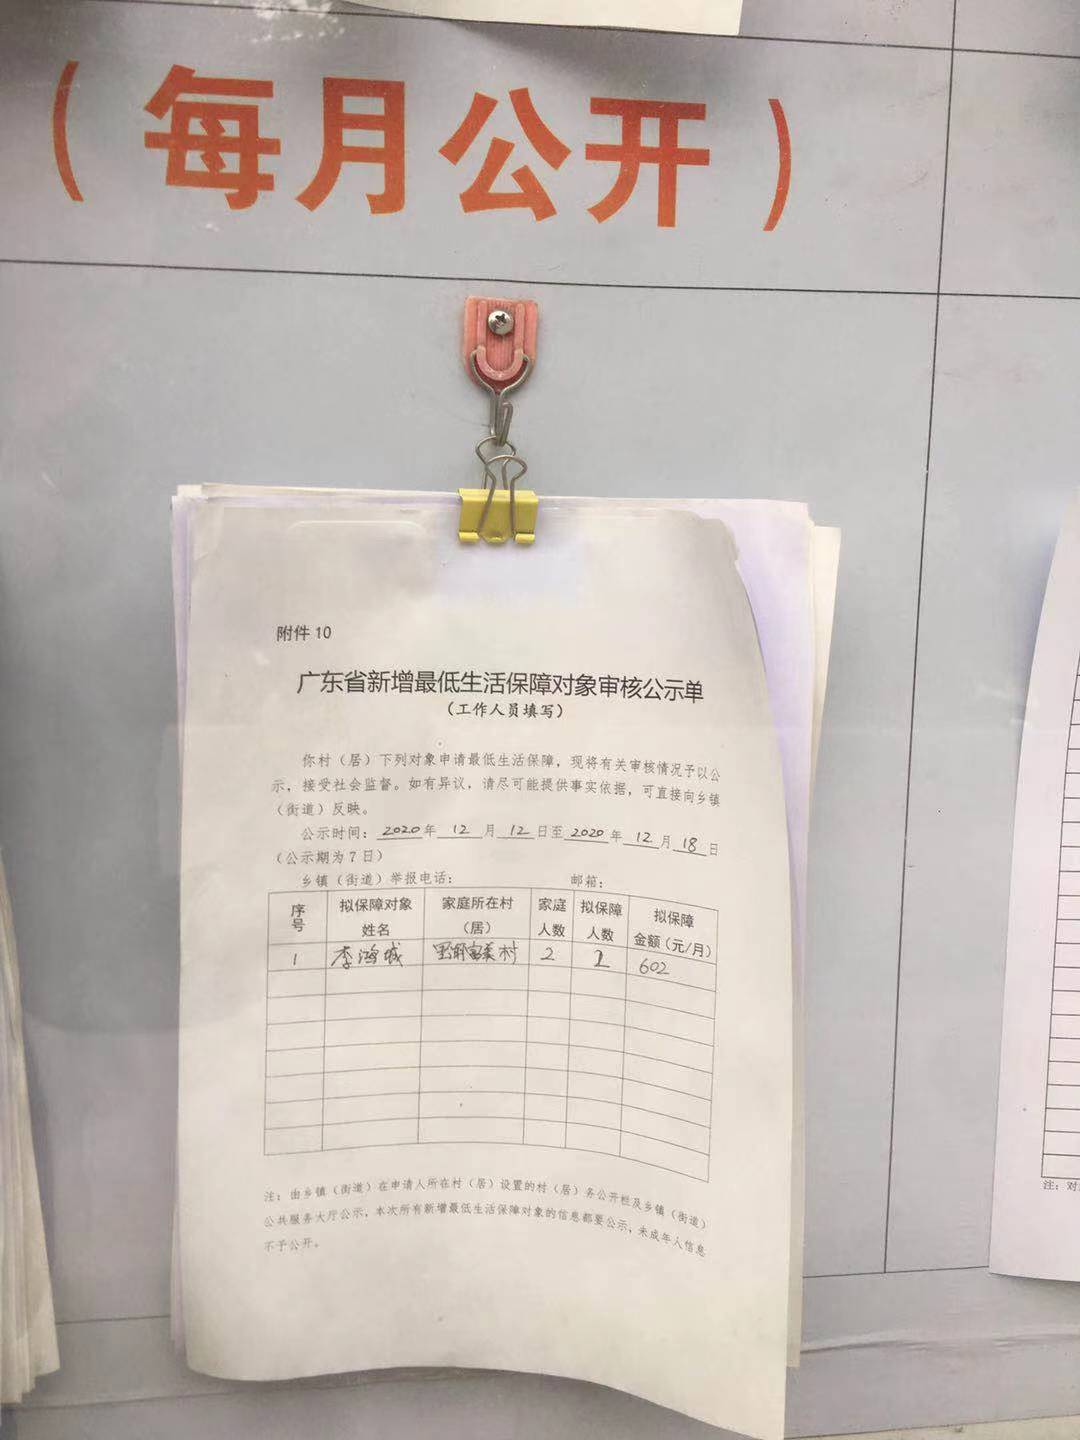 （每月公开）
附件 10
广东省新增最低生活保障对象审核公示单
（工作人员填写）
你村（居）下列对象申请最低生活保障，现将有关审核情况予以公
示，接受社会监督。如有异议，请尽可能提供事实依据，可直接向乡镇
（街道）反映。
公示时间：2020年 12 月 12 日至 2020 年 12 月 18 日
（公示期为7日）
乡镇（街道）举报电话： 邮箱：
序号 拟保障对象姓名 家庭所在村（居） 家庭人数 拟保障人数 拟保障金额（元/月）
1 李鸿城 村 2 1 602
注：由乡镇（街道）在申请人所在村（居）设置的村（居）务公开栏及乡镇（街道）
公共服务大厅公示，本次所有新增最低生活保障对象的信息都要公示，未成年人信息
不予公开。
注：对